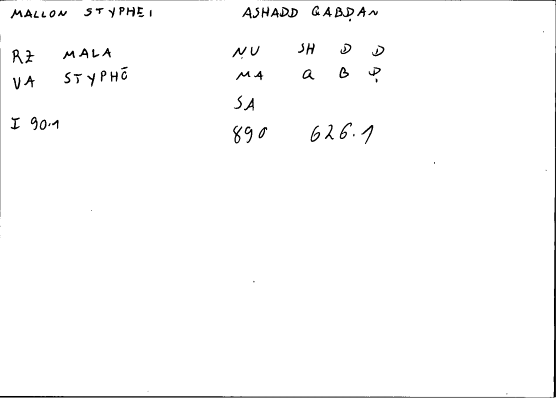 MALLON STYPHEI ASHADD QABḌAN
RZ MALA NU SH D D
VA STYPHŌ MA Q B Ḍ
SA
I 90.1 890 626.1